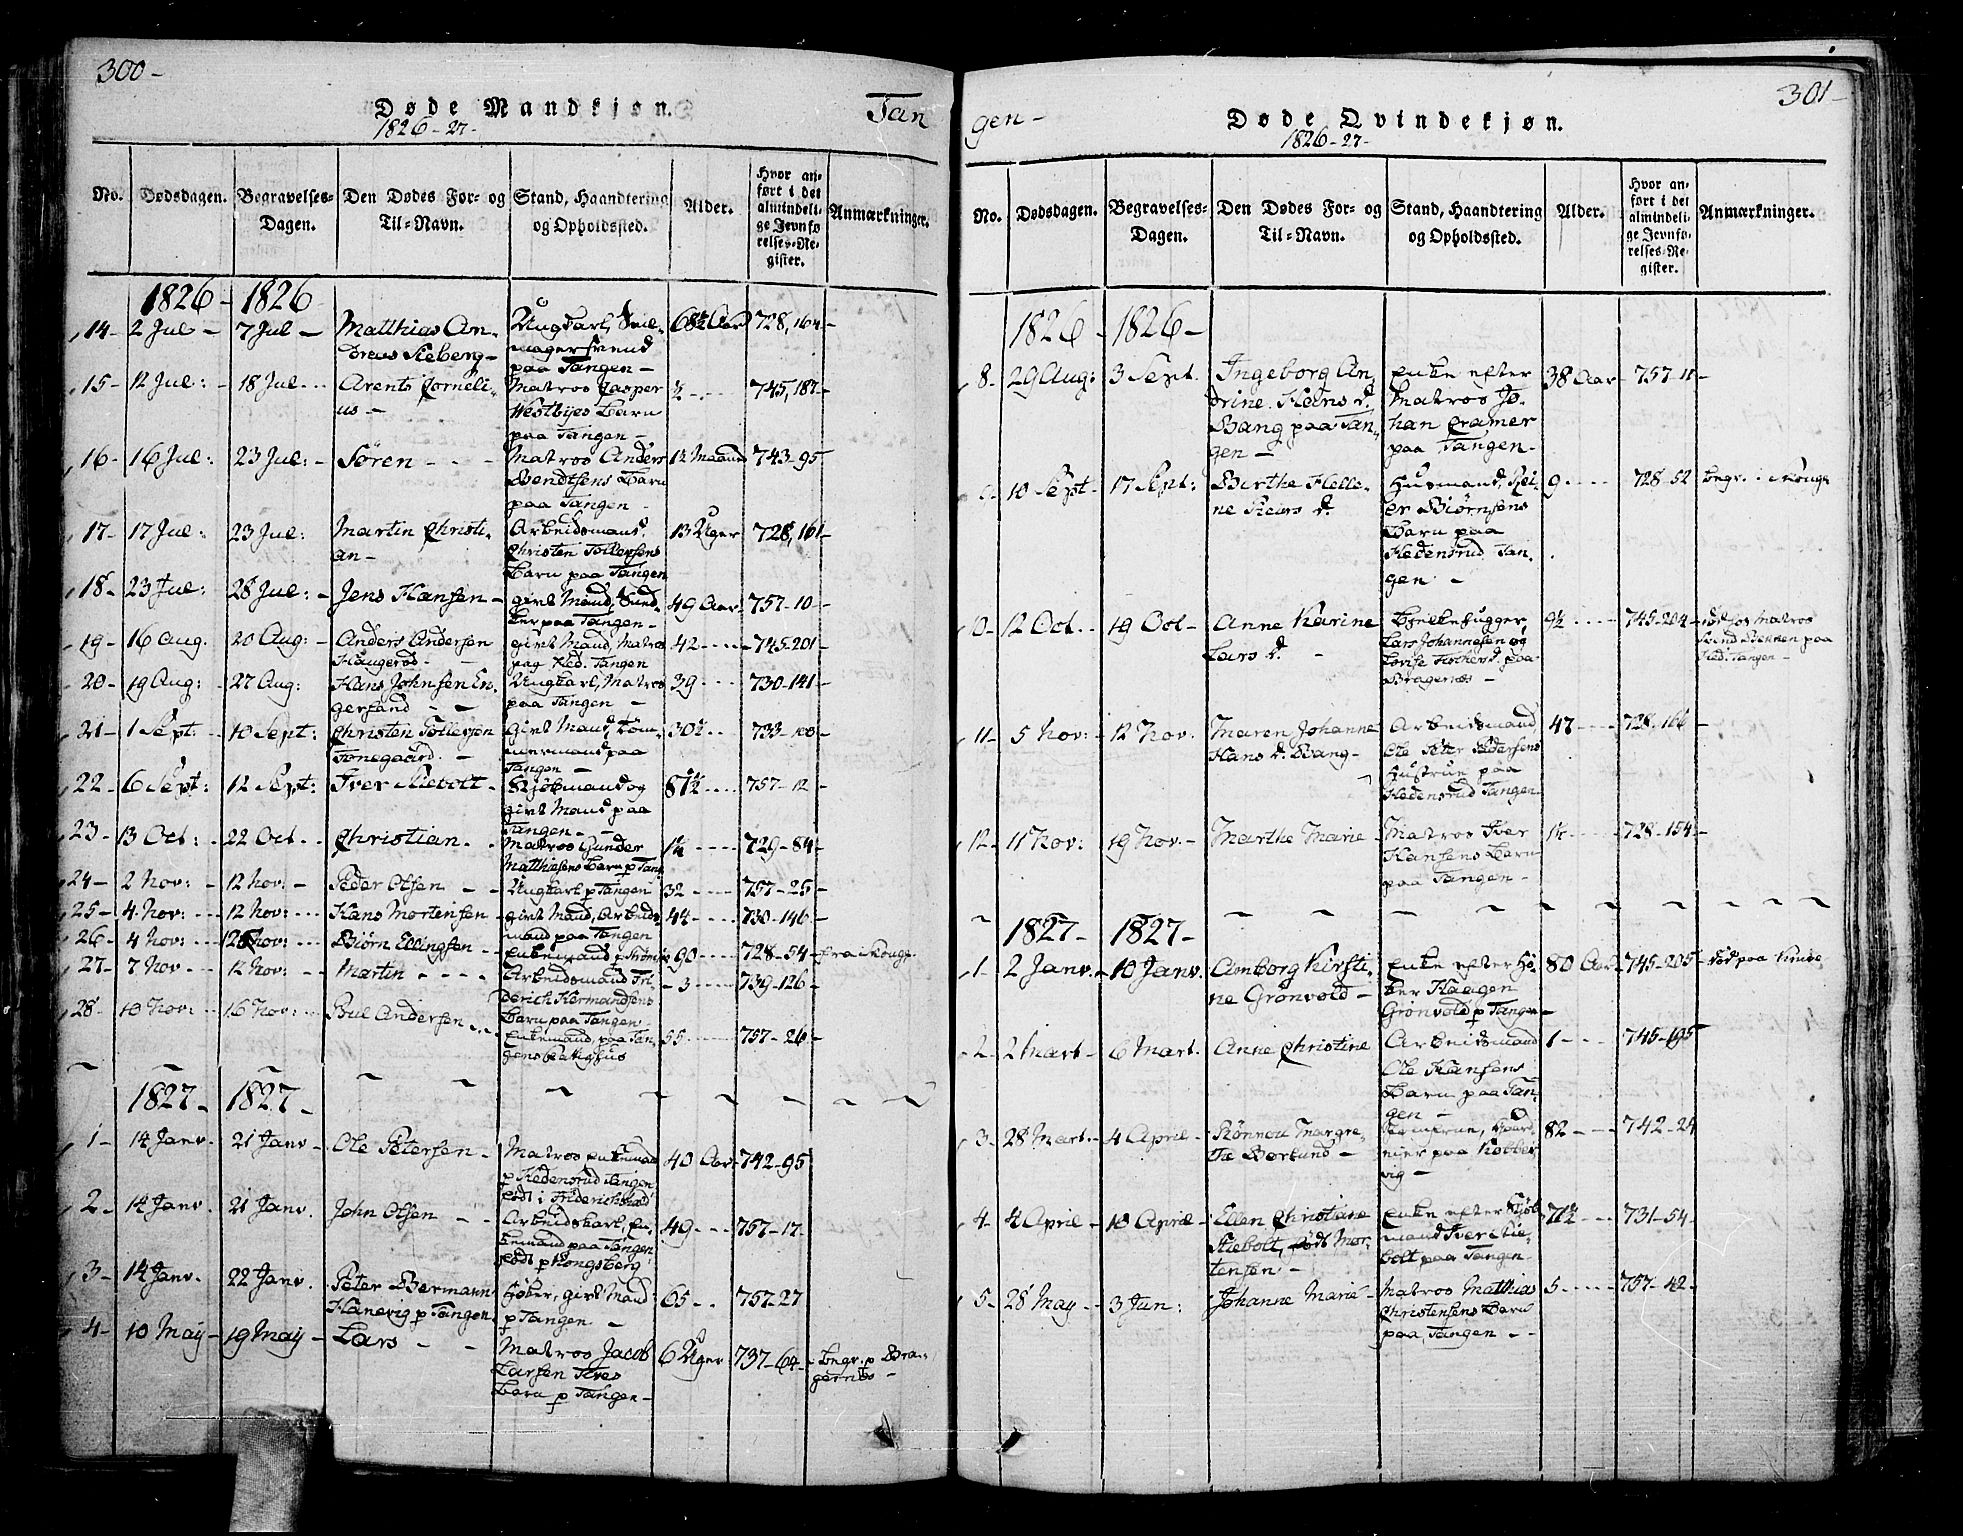 300-
Døde Mandkjøn.
1826-27-
Tan
No.
Dødsdagen.
Begravelses-
Dagen.
Den Dødes For- og
Til-Navn.
Stand, Haandtering
og Opholdssted.
Alder.
Hvor an-
ført i det
almindeli-
ge Jevnfø-
relses-Re-
gister.
Anmærkninger.
1826- 1826
14- 2 Jul- 7 Jul- Matthias An- Ungkarl, 68½ Aar 728,164
dreas Sieberg- magersvend
paa Tangen-
15- 12 Jul: 18 Jul Arents Corneli- Matros Casper ½ 745,187
us- Westbyes Barn
paa Tangen-
16- 16 Jul: 23 Jul: Søren- Matros Anders 1½ Maaned 743-95
Bendtsens Barn
paa Tangen
17- 17 Jul: 23 Jul: Martin Christi- Arbeidsmand 13 Uger 728,161
an- Christen Tollefsens
Barn paa Tangen
18- 23 Jul: 28 Jul: Jens Hansen- givt Mand, 49 Aar 757-10-
paa Tangen-
19- 16 Aug. 20 Aug: Anders Andersen givt Mand, Matros 42 745-201
Haugerød- paa Hed. Tangen
20- 19 Aug: 27 Aug: Hans Johnsen En- Ungkarl, Matros 39 730-141-
gersand paa Tangen-
21- 1 Sept: 10 Sept: Christen Tollefsen givt Mand, Tøm- 30½ 733-100
Tonegaard. mermand paa
Tangen-
22- 6 Sept: 12 Sept: Iver Stiebolt- Kjøbmand og 81½ 757-12
givt Mand paa
Tangen-
23- 13 Oct: 22 Oct. Christian. Matros Gunder 1¼ 729-84
Matthiesens Barn p Tang.
24- 2 Nov: 12 Nov: Peder Olsen- Ungkarl p Tangen 32 757-25
25- 4 Nov: 12 Nov: Hans Mortensen givt Mand, Arbeids- 44 730-146
mand paa Tangen
26- 4 Nov: 12 Nov: Biørn Ellingsen Enkemand p Strømsø 90 728-54
27- 7 Nov 12 Nov: Martin Arbeidsmand Fri- 3 739-126
derich Hermandsens
Barn paa Tangen
28- 10 Nov: 16 Nov: Poul Andersen Enkemand, paa Tan- 55 757-26
gens Fatighus
1827- 1827-
1- 14 Janv. 21 Janv- Ole Petersen- Matros Enkemand 40 Aar 742-95
p Hedensrud Tangen
født i Friderichstad
2- 14 Janv. 21 Janv. John Olsen Arbeidskarl, En- 49 757-17
kemand paa Tangen
født p Kongsberg
3- 14 Janv. 22 Janv. Peter Bermann Høker, givt Mand 65 757-27
Hanevig p Tangen. p Tangen-
4- 10 May- 19 May- Lars- Matros Jacob 6 Uger 737-64- begr. p Bra-
Larsen gernes-
Barn p Tangen-
301-
gen-
Døde Qvindekjøn.
1826-27-
No.
Dødsdagen.
Begravelses-
Dagen.
Den Dødes For- og
Til-Navn.
Stand, Haandtering
og Opholdssted.
Alder.
Hvor an-
ført i det
almindeli-
ge Jevnfø-
relses-Re-
gister.
Anmærkninger.
1826- 1826-
8- 29 Aug: 3 Sept. Ingeborg An- Enke efter 38 Aar 757-11-
drine Hans d. Matros Jo-
Bang paa Tan- han Cramer
gen- paa Tangen-
9- 10 Sept- 17 Sept: Berthe Helle- Husmand, 9 728-52 begr. i
ne d. er Biørnsens
Barn paa
Hedensrud Tan-
gen-
10- 12 Oct. 19 Oct- Anne Karine Brække hugger, 9½ 745-204- Matros
Lars d. Lars Johannesen og paa
paa Hed. Tangen-
Bragernæs-
11- 5 Nov: 12 Nov: Maren Johanne Arbeidsmand 47 728-166
Hans d. Bang- Ole Peter Pedersens
Hustrue paa
Hedensrud Tangen
12- 11 Nov: 19 Nov- Marthe Marie Matros Iver 1¼ 728-154
Hansens Barn
paa Tangen-
1827- 1827-
1- 2 Janv. 10 Janv. Amborg Kirsti- Enke efter Hø- 80 Aar 745-205-
ne Grønvold- ker Haagen
Grønvold p Tangen-
2- 2 Mart- 6 Mart. Anne Christine Arbeidsmand 1 745-195
Ole Hansens
Barn paa Tan-
gen-
3- 28 Mart. 4 April- Rønnou Margre- 82 742-24
te Borlund- paa Kobber-
vig-
4- 4 April- 10 April- Ellen Christine Enke efter Kjøb- 71½ 731-54
Stiebolt, født Mor- mand Iver Stie-
tensen- bolt paa Tangen-
5- 28 May- 3 Jun: Johanne Marie Matros Matthias 5 757-42
Christensens Barn
paa Tangen-